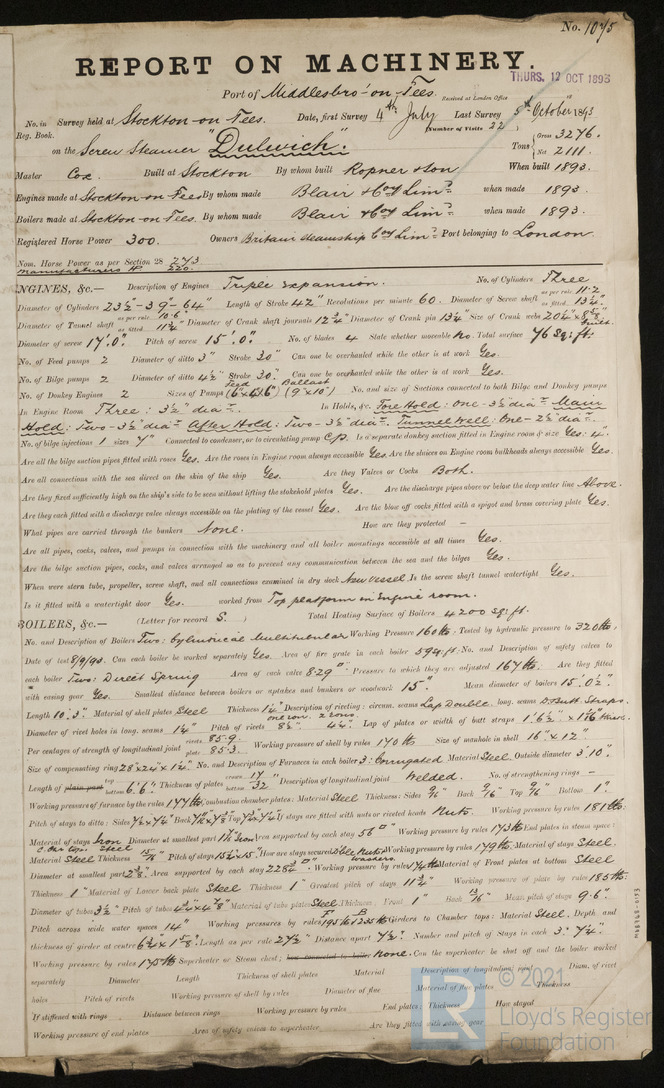 No. 1075
REPORT ON MACHINERY.
THURS. 12 OCT 1893
Port of Middlesbro'-on-Tees.
Received at London Office
No. in Survey held at Stockton-on-Tees. Date, first Survey 4th July Last Survey 5th October 1893
Reg. Book. Number of Visits 22
on the Screw Steamer "Dulwich". Tons Gross 3276. Net 2111.
Master Cox. Built at Stockton By whom built Ropner & Son When built 1893.
Engines made at Stockton on Tees By whom made Blair & Coy Limd when made 1893.
Boilers made at Stockton-on-Tees. By whom made Blair & Coy Limd when made 1893.
Registered Horse Power 300. Owners Britain Steamship Coy Limd Port belonging to London.
Nom. Horse Power as per Section 28 273
Manufacturers HP 220
ENGINES, &c.— Description of Engines Triple expansion. No. of Cylinders Three
Diameter of Cylinders 23½"-39-64" Length of Stroke 42" Revolutions per minute 60. Diameter of Screw shaft as per rule 11.2 as fitted 13¼"
Diameter of Tunnel shaft as per rule 10.6" as fitted 11¾" Diameter of Crank shaft journals 12¾" Diameter of Crank pin 13¼" Size of Crank webs
Diameter of screw 17'.0". Pitch of screw 15'.0". No. of blades 4 State whether moveable No. Total surface 76 sq: ft:
No. of Feed pumps 2 Diameter of ditto 3" Stroke 30" Can one be overhauled while the other is at work Yes.
No. of Bilge pumps 2 Diameter of ditto 4½" Stroke 30". Can one be overhauled while the other is at work Yes.
No. of Donkey Engines 2 Sizes of Pumps Feed Ballast (9"x10") No. and size of Suctions connected to both Bilge and Donkey pumps
In Engine Room Three: 3½" dia. In Holds, &c. Fore Hold: One-3½" dia. Main
Hold: Two-3½" dia. After Hold: Two-3½" dia. Tunnel Well: One-2½" dia.
No. of bilge injections 1 sizes 7" Connected to condenser, or to circulating pump C/P. Is a separate donkey suction fitted in Engine room & size Yes: 4".
Are all the bilge suction pipes fitted with roses Yes. Are the roses in Engine room always accessible Yes. Are the sluices on Engine room bulkheads always accessible Yes.
Are all connections with the sea direct on the skin of the ship Yes. Are they Valves or Cocks Both.
Are they fixed sufficiently high on the ship's side to be seen without lifting the stokehold plates Yes. Are the discharge pipes above or below the deep water line Above.
Are they each fitted with a discharge valve always accessible on the plating of the vessel Yes. Are the blow off cocks fitted with a spigot and brass covering plate Yes.
What pipes are carried through the bunkers None. How are they protected —
Are all pipes, cocks, valves, and pumps in connection with the machinery and all boiler mountings accessible at all times Yes.
Are the bilge suction pipes, cocks, and valves arranged so as to prevent any communication between the sea and the bilges Yes.
When were stern tube, propeller, screw shaft, and all connections examined in dry dock New vessel Is the screw shaft tunnel watertight Yes.
Is it fitted with a watertight door Yes. worked from Top platform in Engine room.
BOILERS, &c.— (Letter for record S.) Total Heating Surface of Boilers 4200 sq: ft.
No. and Description of Boilers Two: Cylindrical Multitubular Working Pressure 160 lbs. Tested by hydraulic pressure to 320 lbs.
Date of test 8/9/93. Can each boiler be worked separately Yes. Area of fire grate in each boiler 59¼ ft: No. and Description of safety valves to
each boiler Two: Direct Spring Area of each valve 8.29" Pressure to which they are adjusted 167 lbs. Are they fitted
with easing gear Yes. Smallest distance between boilers or uptakes and bunkers or woodwork 15" Mean diameter of boilers 15'.0½".
Length 10'.3". Material of shell plates Steel Thickness 1¼" Description of riveting: circum. seams Lap Double. long. seams D. Butt Straps.
Diameter of rivet holes in long. seams 1¼" Pitch of rivets 8½" 4¼" Lap of plates or width of butt straps
Per centages of strength of longitudinal joint rivets 85.9. plate 85.3. Working pressure of shell by rules 170 lbs Size of manhole in shell 16" x 12".
Size of compensating ring 28"x24"x1¼" No. and Description of Furnaces in each boiler 3: Corrugated Material Steel Outside diameter 3'.10".
Length of plain part top bottom 6'.6". Thickness of plates crown bottom 17/32" Description of longitudinal joint Welded. No. of strengthening rings —
Working pressure of furnace by the rules 177 lbs Combustion chamber plates: Material Steel Thickness: Sides 9/16" Back 9/16" Top 9/16" Bottom 1".
Pitch of stays to ditto: Sides Back Top If stays are fitted with nuts or riveted heads Nuts. Working pressure by rules 181 lbs.
Material of stays Iron Diameter at smallest part Area supported by each stay 56" Working pressure by rules 173 lbs End plates in steam space:
Material Steel Thickness 15/16" Pitch of stays 15½"x15" How are stays secured Working pressure by rules 179 lbs. Material of stays Steel.
Diameter at smallest part 2⅜" Area supported by each stay Working pressure by rules Material of Front plates at bottom Steel
Thickness 1" Material of Lower back plate Steel Thickness 1" Greatest pitch of stays 11¾" Working pressure of plate by rules 185 lbs.
Diameter of tubes 3½" Pitch of tubes Material of tube plates Steel Thickness: Front 1" Back 13/16" Mean pitch of stays 9.6".
Pitch across wide water spaces 14" Working pressures by rules Girders to Chamber tops: Material Steel. Depth and
thickness of girder at centre Length as per rule 27½" Distance apart 7½" Number and pitch of Stays in each 3: 7¼".
Working pressure by rules 175 lbs Superheater or Steam chest; how connected to boiler None. Can the superheater be shut off and the boiler worked
separately Diameter Length Thickness of shell plates Material Description of longitudinal joint Diam. of rivet
holes Pitch of rivets Working pressure of shell by rules Diameter of flue Material of flue plates Thickness
If stiffened with rings Distance between rings Working pressure by rules End plates: Thickness How stayed
Working pressure of end plates Area of safety valves to superheater Are they fitted with easing gear
LR
© 2021
Lloyd's Register
Foundation